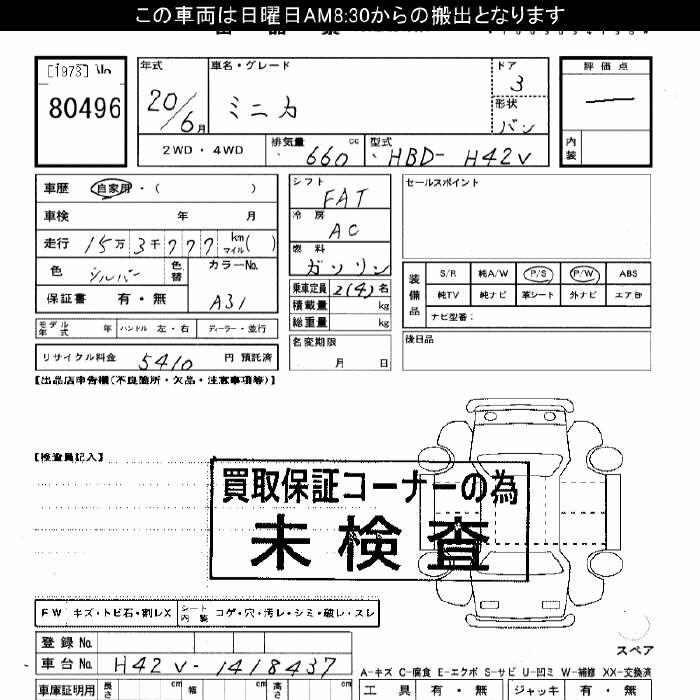 この車両は日曜日AM8:30からの搬出となります
[1973] No
80496
年式 車名・グレード ドア 評価点
20/6月 ミニカ 3
形状
バン
2WD・4WD 排気量 660 cc 型式 HBD-H42V 内装
車歴 自家用・( )
車検 年 月
走行 15万3千777 km マイル( )
色 シルバー 色替 カラーNo.
保証書 有・無 A31
モデル年式 年 ハンドル 左・右 ディーラー・並行
リサイクル料金 5410 円 預託済
シフト
FAT
冷房
AC
燃料
ガソリン
乗車定員 2(4)名
積載量 kg
総重量 kg
名変期限
月 日
セールスポイント
装備品
S/R 純A/W P/S P/W ABS
純TV 純ナビ 革シート 外ナビ エアB
ナビ型番:
後日品
【出品店申告欄(不良箇所・欠品・注意事項等)】
【検査員記入】
買取保証コーナーの為
未検査
FW キズ・トビ石・割レX シート内装 コゲ・穴・汚レ・シミ・破レ・スレ
スペア
登録No.
車台No. H42V-1418437
A-キズ C-腐食 E-エクボ S-サビ U-凹ミ W-補修 XX-交換済
車庫証明用 長さ cm 幅 cm 高さ cm
工具 有・無 ジャッキ 有・無